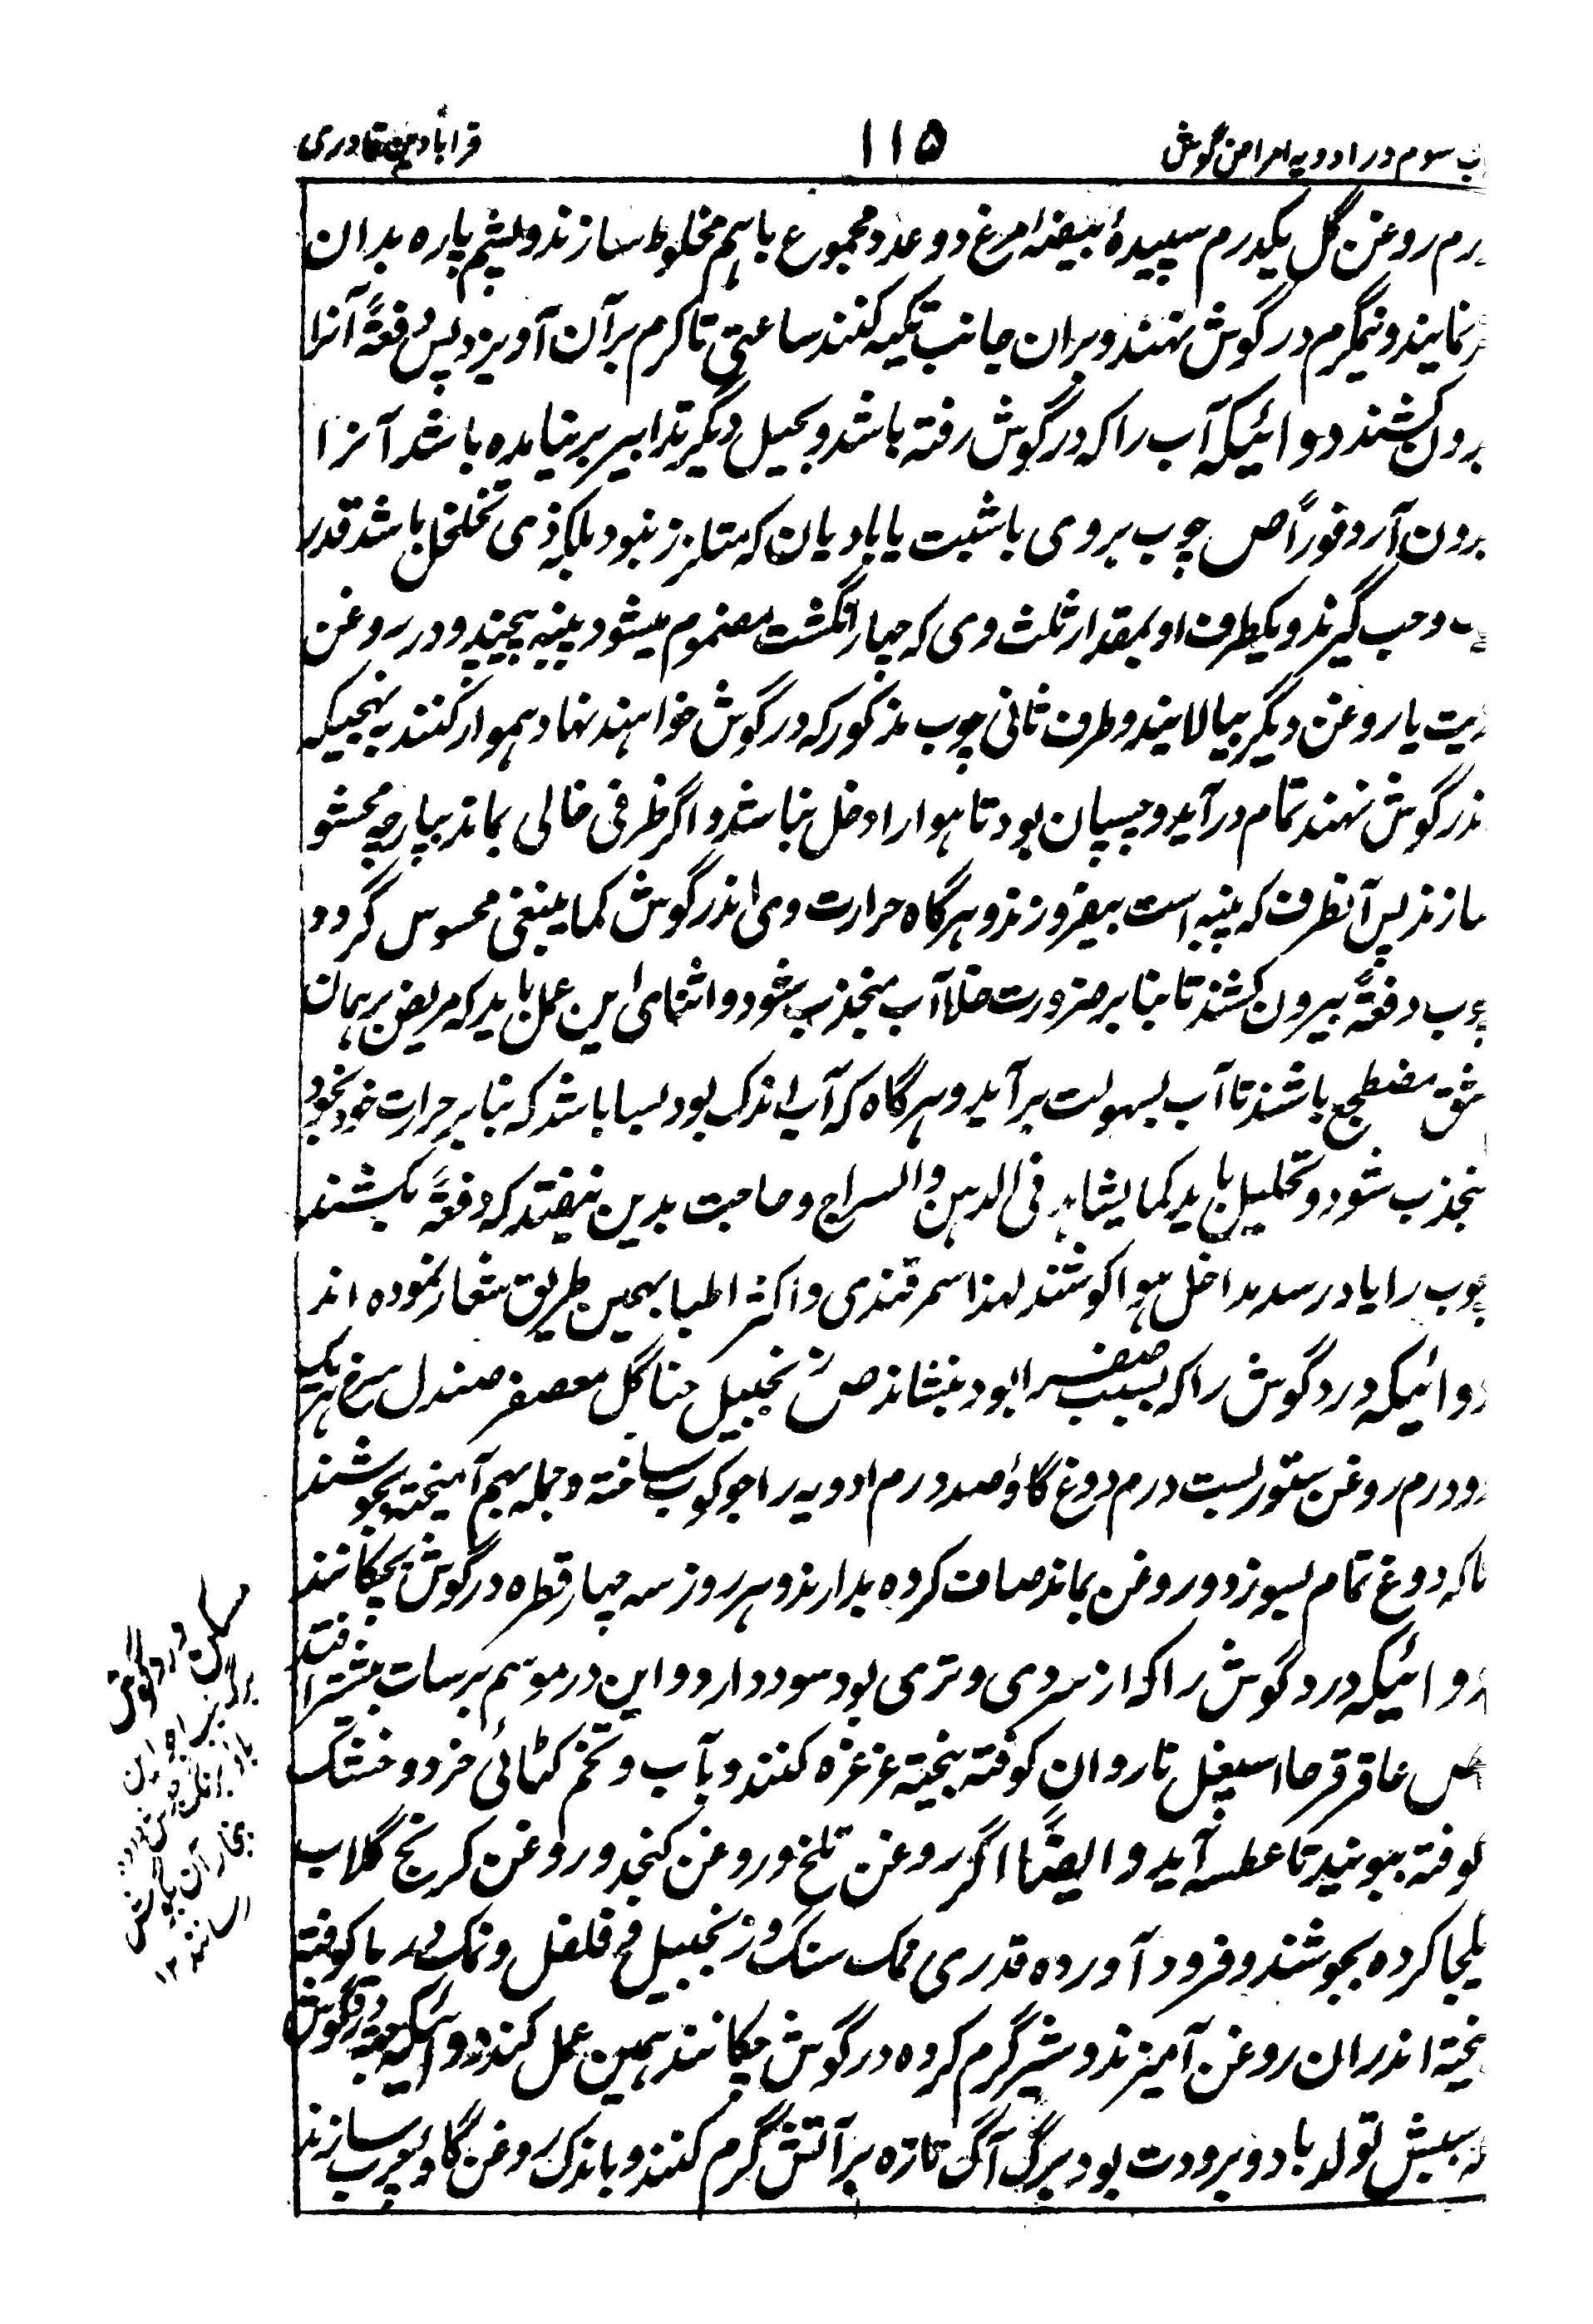 باب سوم در ادویه امراض گوش ۱۱۵ قرابادین قادری
درم روغن گل یکدرم سپیدهٔ بیضهٔ مرغ دو عدد مجموع باهم مخلوط سازند و پشم پاره بدان
نمایند و نیمگرم در گوش نهند و بران جانب تکیه کنند ساعتی تا کرم بر آن آویزد پس دفعةً آنرا
برون کشند دوائیکه آب را که در گوش رفته باشد و بحیل دیگر تدابیر بر نیامده باشد آنرا
برون آرد فوراً ص چوب بروی یا شبت یا بادیان که متلزز نبود بلکه ذی تخلخل باشد قدر
وجب گیرند و یکطرف او بمقدار ثلث وی که چهار انگشت مضموم میشود پنبه پیچند و در روغن
زیت یا روغن دیگر بیالایند و طرف ثانی چوب مذکور که در گوش خواهند نهاد هموار کنند بنهجیکه
اندر گوش نهند تمام درآید و چسپان بود تا هوا را دخل نباشد و اگر ظرفی خالی بماند بپارچه محشو
سازند پس آنطرف که پنبه است بیفروزند و هرگاه حرارت وی اندر گوش کما ینبغی محسوس گردد
چوب دفعةً بیرون کشند تا بنابر ضرورت خلا آب منجذب شود و اثنای این عمل باید که مریض بر همان
شق مضطجع باشند تا آب بسهولت برآید و هرگاه که آب اندک بود بسا باشد که بنابر حرارت خود بخود
منجذب شود و تحلیل یابد کما یشاهد فی الدهن والسراج و حاجت بدین نیفتد که دفعةً بکشند
چوب را یا در سد مداخل هوا کوشند لهذا سمرقندی و اکثر اطبا بهمین طریق شعار نموده اند
دوائیکه درد گوش را که بسبب صفرا بود بنشاند ص زنجبیل حنا گل معصفر صندل سرخ هریک
دو درم روغن ستور بست درم دوغ گاو صد درم ادویه را جوکوب ساخته و جمله بهم آمیخته بجوشند
تا که دوغ تمام بسوزد و روغن بماند صاف کرده بدارند و هر روز سه چهار قطره در گوش بچکانند
دوائیکه درد گوش را که از سردی و تری بود سود دارد و این در موسم برسات بیشتر افتد
ص عاقرقرحا اسپغل تاروان کوفته بیخته غرغره کنند و بآب و تخم کٹائی خرد و خشک
کوفته ببویند تا عطسه آید و ایضاً اگر روغن تلخ و روغن کنجد و روغن کرنج گلاب
یکجا کرده بجوشند و فرود آورده قدری نمک سنگ و زنجبیل و فلفل و نمک دریا کوفته
بیخته اندران روغن آمیزند و شیر گرم کرده در گوش چکانند همین عمل کند دوائیکه جهة درد گوش
که سببش تولد باد و برودت بود برگ آگ تازه بر آتش گرم کنند و باندک روغن گاو چرب سازند
مسکن درد گوش
بخار آن بگوش
رسانند ۱۲